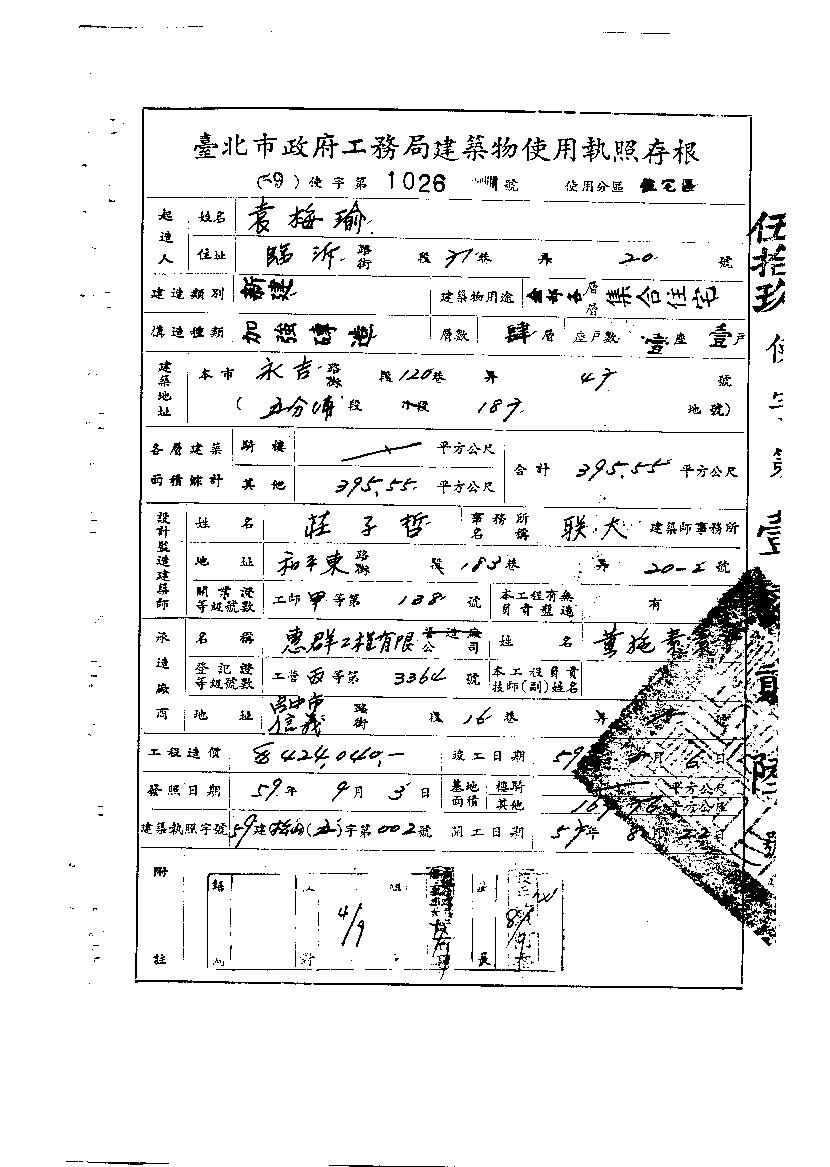 臺北市政府工務局建築物使用執照存根
(59)使字第1026號 使用分區 住宅區
起造人 姓名 袁梅瑜
住址 臨沂路街 段 31巷 弄 20 號
建造類別 新建 建築物用途 層層 集合住宅
構造種類 加強磚造 層數 肆層 座戶數 壹座 壹戶
建築地址 本市 永吉路街 段120巷 弄 47 號
(五分埔段 小段 187 地號)
各層建築面積總計 騎樓 平方公尺 合計 395.55 平方公尺
其他 395.55 平方公尺
設計監造建築師 姓名 莊子哲 事務所名稱 联大 建築師事務所
地址 和平東路街 段183巷 弄 20-2號
開業證等級號數 工師甲等第 138 號 本工程有無負責監造 有
承造廠商 名稱 惠群工程有限公司 姓名
登記證等級號數 工營 等第 3364 號 本工程負責技師(副)姓名
地址 信義路街 段16巷 弄 號
工程造價 424,040.- 竣工日期 59 月 6日
發照日期 59年 9月 3日 基地面積 樓騎 平方公尺
其他 平方公尺
建築執照字號 59建 字第002號 開工日期 年 月 22日
附註
4/9
長
伍拾玖使字第壹
號